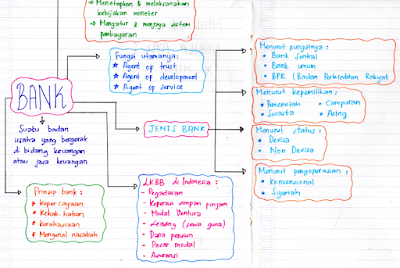 * Menetapkan & melaksanakan
kebijakan moneter
* Mengatur & menjaga sistem
pembayaran
Fungsi utamanya:
* Agent of trust
* Agent of development
* Agent of service
BANK
Suatu badan
usaha yang bergerak
di bidang keuangan
atau jasa keuangan
JENIS BANK
Menurut fungsinya:
* Bank Sentral
* Bank umum
* BPR (Badan Perkreditan Rakyat
Menurut kepemilikan:
* Pemerintah * Campuran
* Swasta * Asing
Menurut status:
* Devisa
* Non Devisa
Menurut pengoperasian:
* Konvensional
* Syariah
Prinsip bank:
* Kepercayaan
* Kehati-hatian
* Kerahasiaan
* Mengenal nasabah
LKBB di Indonesia:
- Pegadaian
- Koperasi simpan pinjam
- Modal Ventura
- Leasing (sewa guna)
- Dana pensiun
- Pasar modal
- Asuransi